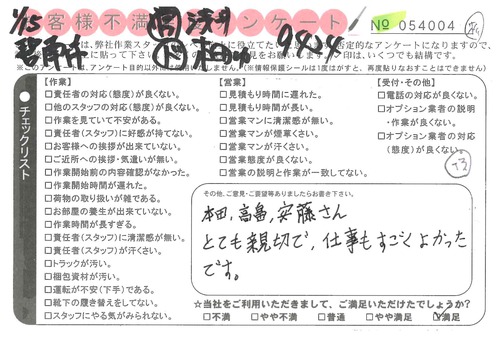 お客様不満足アンケート
№ 054004
1/15
は、弊社作業スタ
に役立てたい
否定的なアンケートになりますので、
※このアンケートは、アンケート目的以外には使用いたしません。(※情報保護シールは1度はがすと、再度貼りなおすことはできません)
チェックリスト
【作業】
□責任者の対応(態度)が良くない。
□他のスタッフの対応(態度)が良くない。
□作業を見ていて不安がある。
□責任者(スタッフ)に好感が持てない。
□お客様への挨拶が出来ていない。
□ご近所への挨拶・気遣いが無い。
□作業開始前の内容確認がなかった。
□作業開始時間が遅れた。
□荷物の取り扱いが雑である。
□お部屋の養生が出来ていない。
□作業時間が長すぎる。
□責任者(スタッフ)に清潔感が無い。
□責任者(スタッフ)が汗くさい。
□トラックが汚い。
□梱包資材が汚い。
□運転が不安(下手)である。
□靴下の履き替えをしてない。
□スタッフにやる気がみられない。
【営業】
□見積もり時間に遅れた。
□見積もり時間が長い。
□営業マンに清潔感が無い。
□営業マンが煙草くさい。
□営業マンが汗くさい。
□営業態度が良くない。
□営業の説明と作業が一致してない。
【受付・その他】
□電話の対応が良くない。
□オプション業者の説明
・作業が良くない。
□オプション業者の対応
(態度)が良くない。
その他、ご意見・ご要望等ありましたらお書き下さい。
本田,高畠,安藤さん
とても親切で,仕事もすごくよかった
です。
☆当社をご利用いただきまして、ご満足いただけたでしょうか?
□不満 □やや不満 □普通 □やや満足 □満足